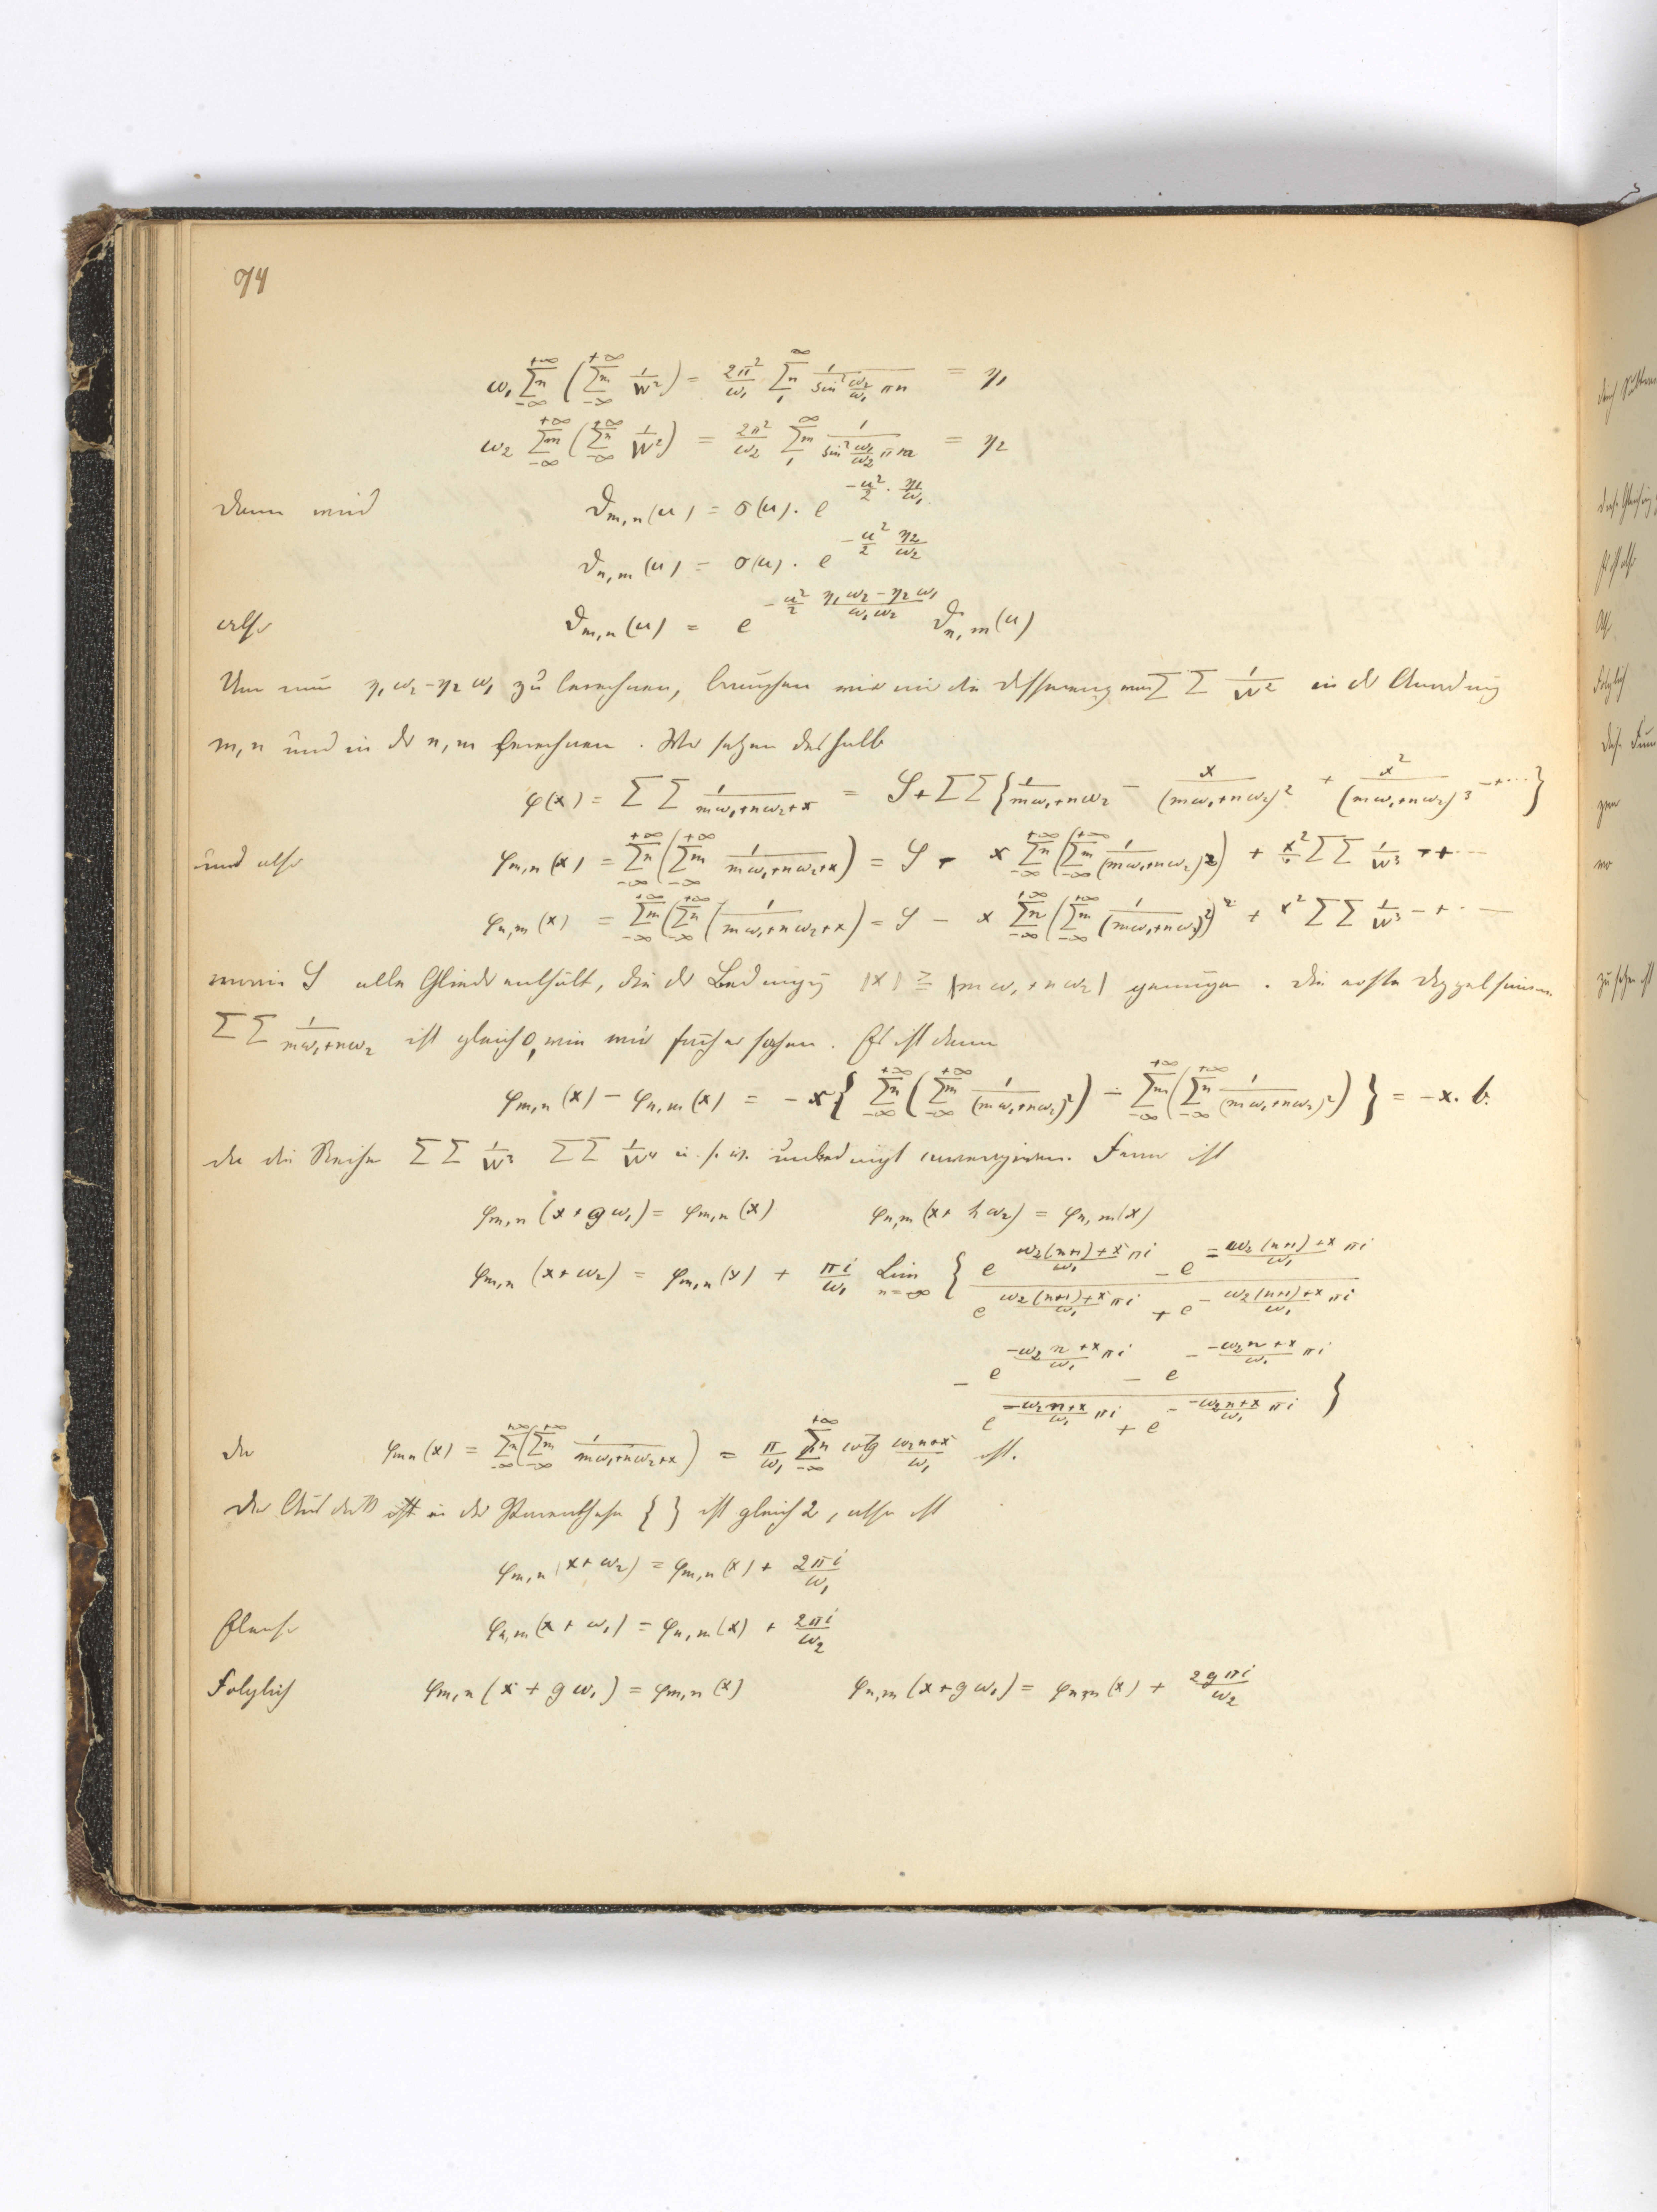 94
ω₁ Σn_{-∞}^{+∞} (Σm_{-∞}^{+∞} 1/W²) = 2π²/ω₁ Σn_1^∞ 1/(sin² ω₂/ω₁ πn) = η₁
ω₂ Σm_{-∞}^{+∞} (Σn_{-∞}^{+∞} 1/W²) = 2π²/ω₂ Σm_1^∞ 1/(sin² ω₁/ω₂ πm) = η₂
Dann wird ϑ_{m,n}(u) = σ(u) · e^{-u²/2 · η₁/ω₁}
ϑ_{n,m}(u) = σ(u) · e^{-u²/2 η₂/ω₂}
also ϑ_{m,n}(u) = e^{-u²/2 (η₁ω₂-η₂ω₁)/(ω₁ω₂)} ϑ_{n,m}(u)
Um nun η₁ω₂-η₂ω₁ zu berechnen, brauchen wir nur die Differenz von ΣΣ 1/W² in der Anordnung
m,n und in der n,m berechnen. Wir setzen deshalb
φ(x) = ΣΣ 1/(mω₁+nω₂+x) = S + ΣΣ{1/(mω₁+nω₂) - x/(mω₁+nω₂)² + x²/(mω₁+nω₂)³ -+···}
und also φ_{m,n}(x) = Σn_{-∞}^{+∞}(Σm_{-∞}^{+∞} 1/(mω₁+nω₂+x)) = S - x Σn_{-∞}^{+∞}(Σm_{-∞}^{+∞} 1/(mω₁+nω₂)²) + x² ΣΣ 1/W³ -+···
φ_{n,m}(x) = Σm_{-∞}^{+∞}(Σn_{-∞}^{+∞}(1/(mω₁+nω₂+x)) = S - x Σn_{-∞}^{+∞}(Σm_{-∞}^{+∞} 1/(mω₁+nω₂)²)² + x² ΣΣ 1/W³ -+···
worin S alle Glieder enthält, die der Bedingung |x| ≧ |mω₁+nω₂| genügen. Die erste Doppelsumme
ΣΣ 1/(mω₁+nω₂) ist gleich 0, wie wir früher sahen. Es ist dann
φ_{m,n}(x) - φ_{n,m}(x) = -x{Σn_{-∞}^{+∞}(Σm_{-∞}^{+∞} 1/(mω₁+nω₂)²) - Σm_{-∞}^{+∞}(Σn_{-∞}^{+∞} 1/(mω₁+nω₂)²)} = -x. b.
da die Reihen ΣΣ 1/W³ ΣΣ 1/W⁴ u.s.w. unbedingt convergieren. Ferner ist
φ_{m,n}(x+gω₁) = φ_{m,n}(x) φ_{n,m}(x+hω₂) = φ_{n,m}(x)
φ_{m,n}(x+ω₂) = φ_{m,n}(x) + πi/ω₁ Lim_{n=∞} {(e^{(ω₂(n+1)+x)/ω₁ πi} - e^{-(ω₂(n+1)+x)/ω₁ πi})/(e^{(ω₂(n+1)+x)/ω₁ πi} + e^{-(ω₂(n+1)+x)/ω₁ πi})
- (e^{(-ω₂n+x)/ω₁ πi} - e^{-(-ω₂n+x)/ω₁ πi})/(e^{(-ω₂n+x)/ω₁ πi} + e^{-(-ω₂n+x)/ω₁ πi})}
da φ_{mn}(x) = Σn_{-∞}^{+∞}(Σm_{-∞}^{+∞} 1/(mω₁+nω₂+x)) = π/ω₁ Σn_{-∞}^{+∞} cotg (ω₂n+x)/ω₁ ist.
Der Ausdruck in der Parenthese { } ist gleich 2, also ist
φ_{m,n}(x+ω₂) = φ_{m,n}(x) + 2πi/ω₁
Ebenso φ_{n,m}(x+ω₁) = φ_{n,m}(x) + 2πi/ω₂
Folglich φ_{m,n}(x+gω₁) = φ_{m,n}(x) φ_{n,m}(x+gω₁) = φ_{n,m}(x) + 2gπi/ω₂